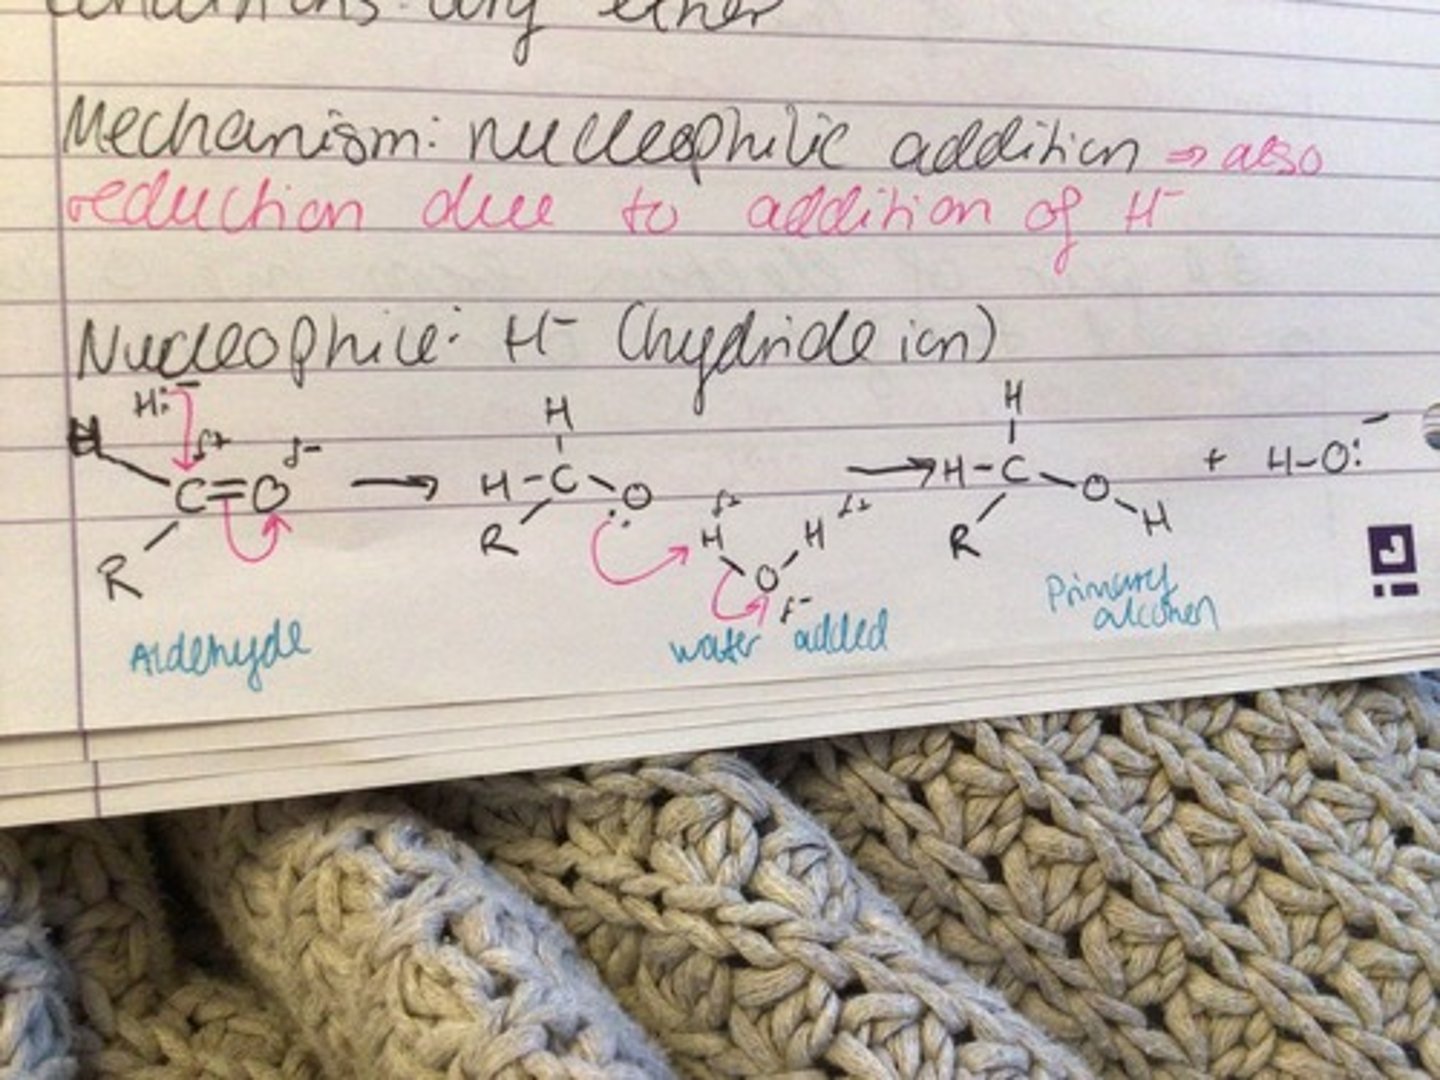 conditions: dry ether
Mechanism: nucleophilic addition ⇒ also
reduction due to addition of H⁻
Nucleophile: H⁻ (hydride ion)
H:⁻
H δ+ δ-
C=O
R
H
H-C-O
:
R
δ+ δ+
H H
O
δ-
H
H-C-O
H
R
+ H-O:⁻
Aldehyde
water added
Primary
alcohol